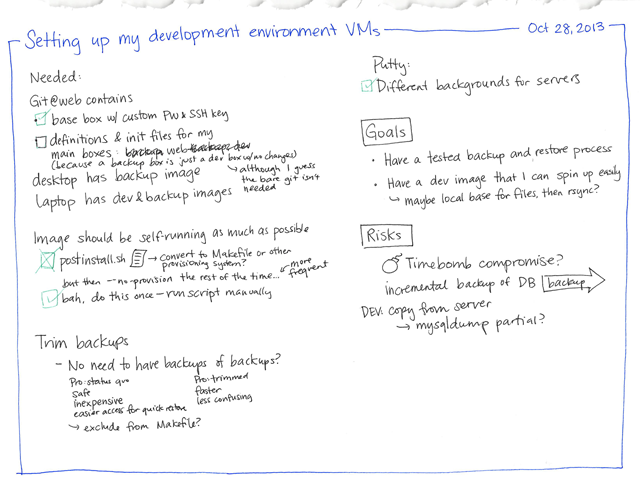 Setting up my development environment VMs
Oct 28, 2013
Needed:
Git@web contains
base box w/ custom PW & SSH key
definitions & init files for my
main boxes: backup web backup dev
(because a backup box is just a dev box w/ no changes)
desktop has backup image
↳ although I guess
the bare git isn't
needed
laptop has dev & backup images
Image should be self-running as much as possible
postinstall.sh → convert to Makefile or other
provisioning system?
but then --no-provision the rest of the time...
more
frequent
bah, do this once - run script manually
Trim backups
- No need to have backups of backups?
Pro: status quo
safe
inexpensive
easier access for quick restore
Pro: trimmed
faster
less confusing
↳ exclude from Makefile?
Putty:
Different backgrounds for servers
Goals
• Have a tested backup and restore process
• Have a dev image that I can spin up easily
↳ maybe local base for files, then rsync?
Risks
Timebomb compromise?
incremental backup of DB backup
DEV: copy from server
→ mysqldump partial?